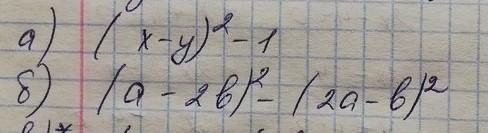 а) (x-y)²-1
б) (a-2b)²-(2a-b)²